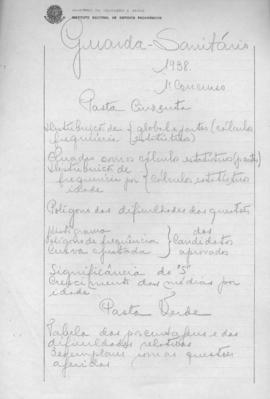 MINISTÉRIO DA EDUCAÇÃO E SAÚDE
INSTITUTO NACIONAL DE ESTUDOS PEDAGÓGICOS
Guarda-Sanitário
1938.
1º Concurso
Pasta Cinzenta
Distribuição de f globais e partes (cálculo
frequência estatístico)
Quadros com os cálculos estatísticos (partes)
Distribuição de
frequência por } Cálculo estatístico
idade
Polígono das dificuldades das questões
Histograma } dos
Polígono de frequência } candidatos
Curva ajustada } aprovados
Significância de "S"
Crescimento das médias por
idade
Pasta Verde
Tabela das porcentagens e das
dificuldades relativas
Exemplares com as questões
aferidas